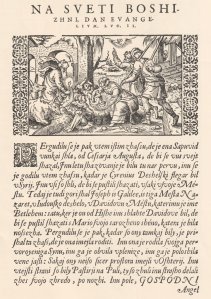 NA SVETI BOSHI-
ZHNI DAN EVANGE-
LIVM, LVC. II.
PErgudilu ſe je pak vtem iſtim zhaſsu, de je ena Sapovid
vunkai shla, od Ceſſarja Auguſta, de bi ſe vus ſvejt
ſhazal, Inu letu ſhazovanje je bilu tu nar pervu, inu ſe
je godilu vtem zhaſsu, kadar je Cyrenius Deshelſki flegar bil
vSyrij. Inu vſi ſo shli, de bi ſe puſtili ſhazati, vſakteri vſvoje Mé-
ſtu. Tedaj je tudi gori shal Joſeph is Galilee, is tiga Meſta Na-
zaret, v Iudouſko deshelo, vDavidovu Méſtu, kateru ſe imenuje
Betlehem: satu, ker je on od Hiſhe inu shlahte Davidove bil, de
bi ſe puſtil ſhazati s Mario ſvojo sarozheno ſheno, katera je bila
noſezha. Pergudilu ſe je pak, kadar ſta ondi bila, je pri-
shal ta zhaſs, de je ona imejla roditi. Inu ona je rodila ſvojga per-
vorojeniga Synu, inu ga je obvila vplenize, inu ga je polushila
vene jaſli: Sakaj ony néſo ſicer proſtora imejli vOſhtarij. Inu
vtejſti ſtrani ſo bily Paſtirji na Puli, ty ſo zhuli inu ſtraſho dèr-
shes zhes ſvojo zhredo, po nozhi. Inu pole, GOSPODNI
Angel